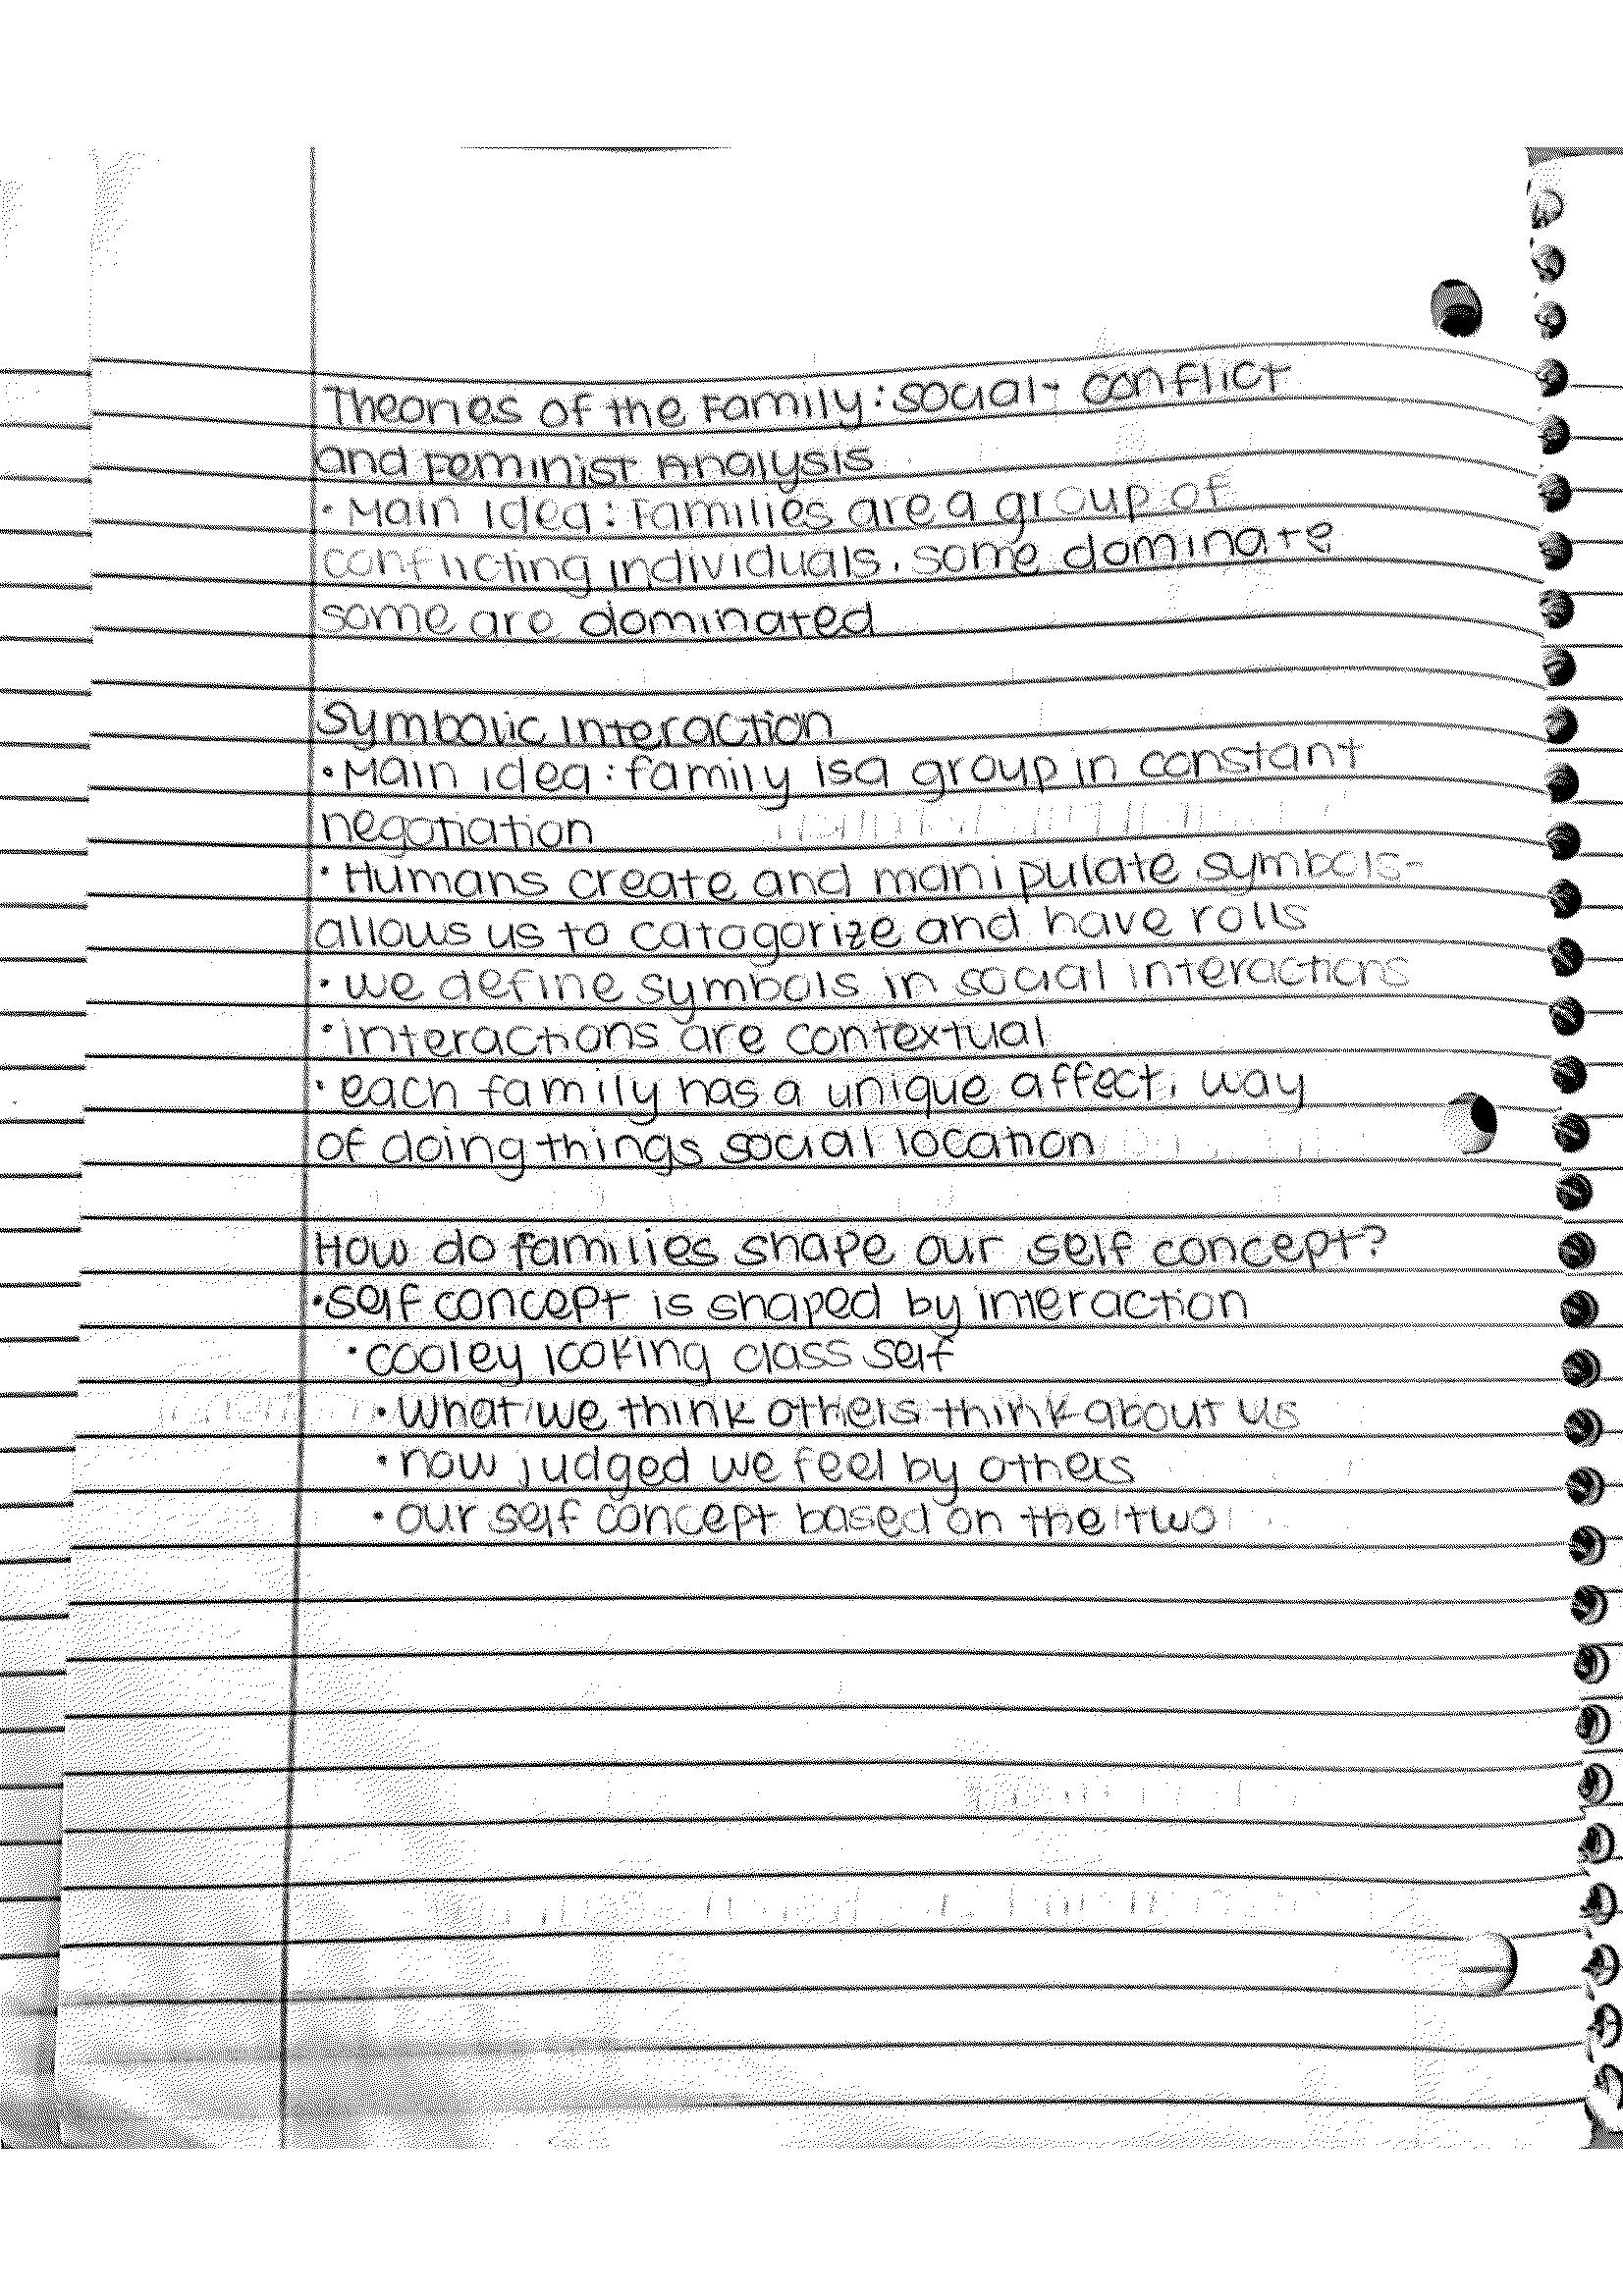 Theories of the Family: social- conflict
and Feminist Analysis
• Main Idea: Families are a group of
conflicting individuals. some dominate
some are dominated
Symbolic Interaction
• Main idea: family is a group in constant
negotiation
• Humans create and manipulate symbols-
allows us to catagorize and have rolls
• we define symbols in social interactions
• interactions are contextual
• each family has a unique affect, way
of doing things social location
How do families shape our self concept?
• self concept is shaped by interaction
• cooley looking class self
• What we think others think about us
• how judged we feel by others
• our self concept based on the two